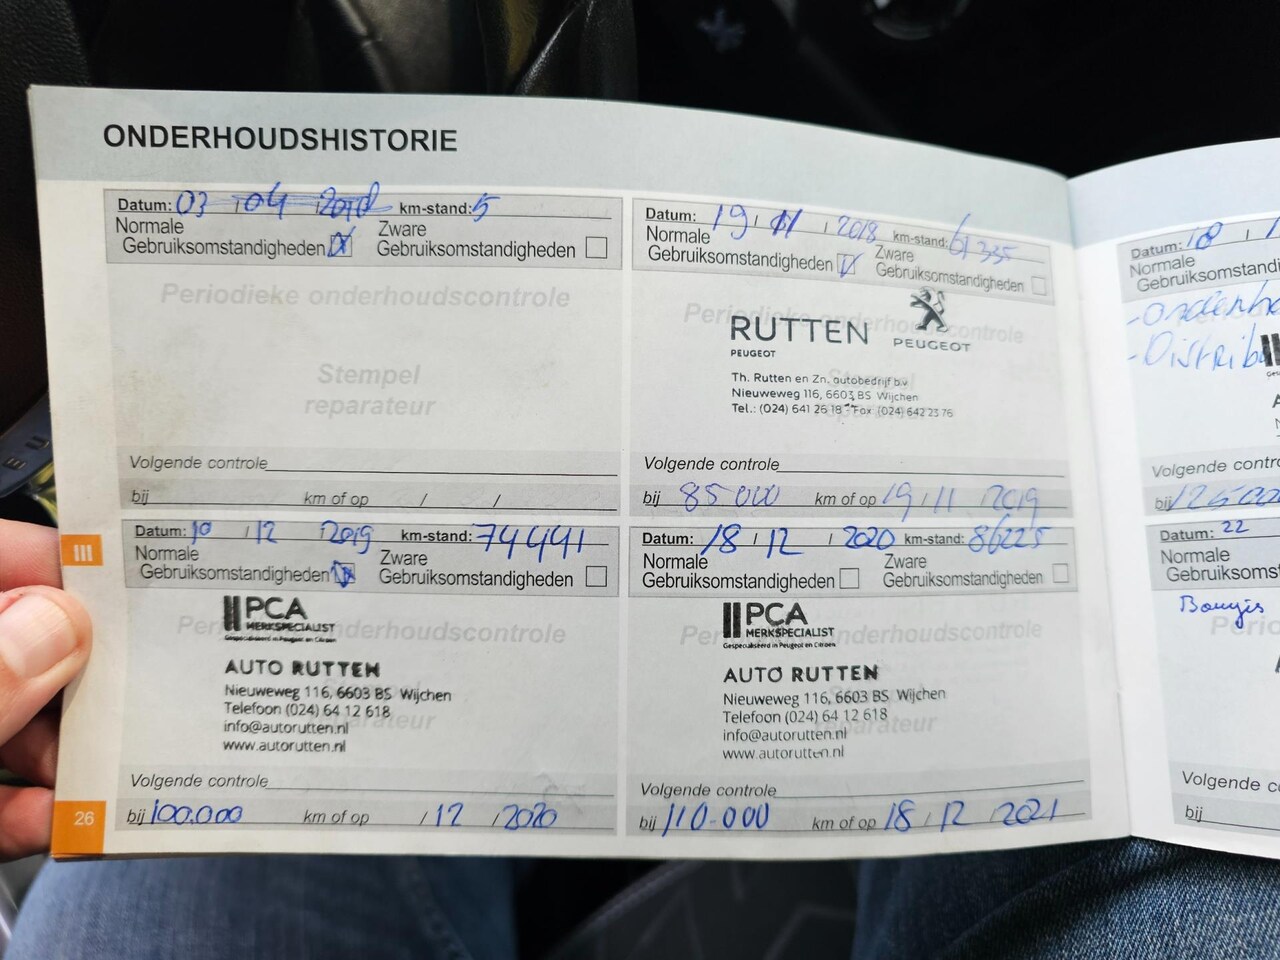 ONDERHOUDSHISTORIE
Datum: 03 / 04 / km-stand: 5
Normale Gebruiksomstandigheden
Zware Gebruiksomstandigheden
Periodieke onderhoudscontrole
Stempel
reparateur
Volgende controle
bij km of op / /
Datum: 19 / 11 / 2018 km-stand: 61335
Normale Gebruiksomstandigheden
Zware Gebruiksomstandigheden
Periodieke onderhoudscontrole
RUTTEN
PEUGEOT
PEUGEOT
Th. Rutten en Zn. autobedrijf b.v.
Nieuweweg 116, 6603 BS Wijchen
Tel.: (024) 641 26 18 - Fox (024) 642 23 76
Volgende controle
bij 85 000 km of op 19 / 11 / 2019
III
Datum: 10 / 12 / 2019 km-stand: 74441
Normale Gebruiksomstandigheden
Zware Gebruiksomstandigheden
Periodieke onderhoudscontrole
PCA
MERKSPECIALIST
Gespecialiseerd in Peugeot en Citroën
AUTO RUTTEN
Nieuweweg 116, 6603 BS Wijchen
Telefoon (024) 64 12 618
info@autorutten.nl
www.autorutten.nl
Stempel
reparateur
Volgende controle
bij 100.000 km of op / 12 / 2020
Datum: 18 / 12 / 2020 km-stand: 86225
Normale Gebruiksomstandigheden
Zware Gebruiksomstandigheden
Periodieke onderhoudscontrole
PCA
MERKSPECIALIST
Gespecialiseerd in Peugeot en Citroën
AUTO RUTTEN
Nieuweweg 116, 6603 BS Wijchen
Telefoon (024) 64 12 618
info@autorutten.nl
www.autorutten.nl
Stempel
reparateur
Volgende controle
bij 110.000 km of op 18 / 12 / 2021
26
Datum: 18 /
Normale
Gebruiksomstandi
- Onderh
- Distrib
Volgende contro
bij 125000
Datum: 22
Normale
Gebruiksomst
Bougis
Perio
Volgende co
bij